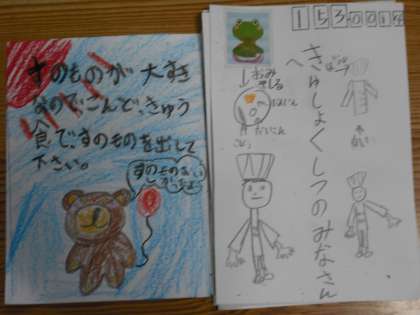 すのものが大すき
なのでこんど、きゅう
食で、すのものを出して
下さい。
すのものさい
1530014
きゅしょくしつのみなさん
へ
おみ
そしる
だいこん